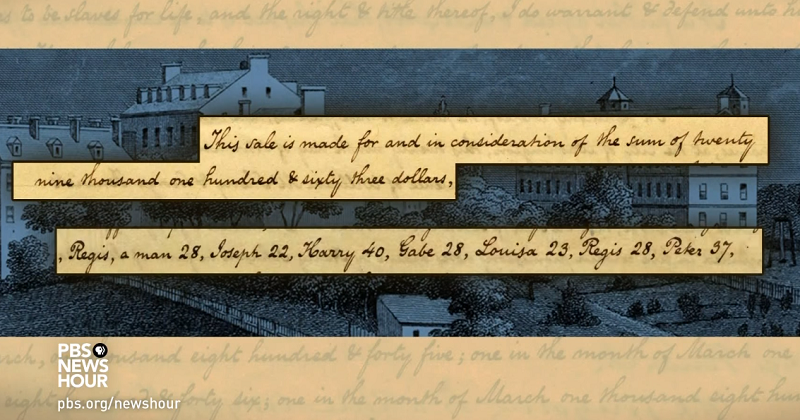 es to be slaves for life, and the right & title thereof, I do warrant & defend unto
This sale is made for and in consideration of the sum of twenty
nine thousand one hundred & sixty three dollars,
, Regis, a man 28, Joseph 22, Harry 40, Gabe 28, Louisa 23, Regis 28, Peter 37,
PBS
NEWS
HOUR
pbs.org/newshour
thousand eight hundred & forty five; one in the month of March one
eight & forty six; one in the month of March one thousand eight hundred